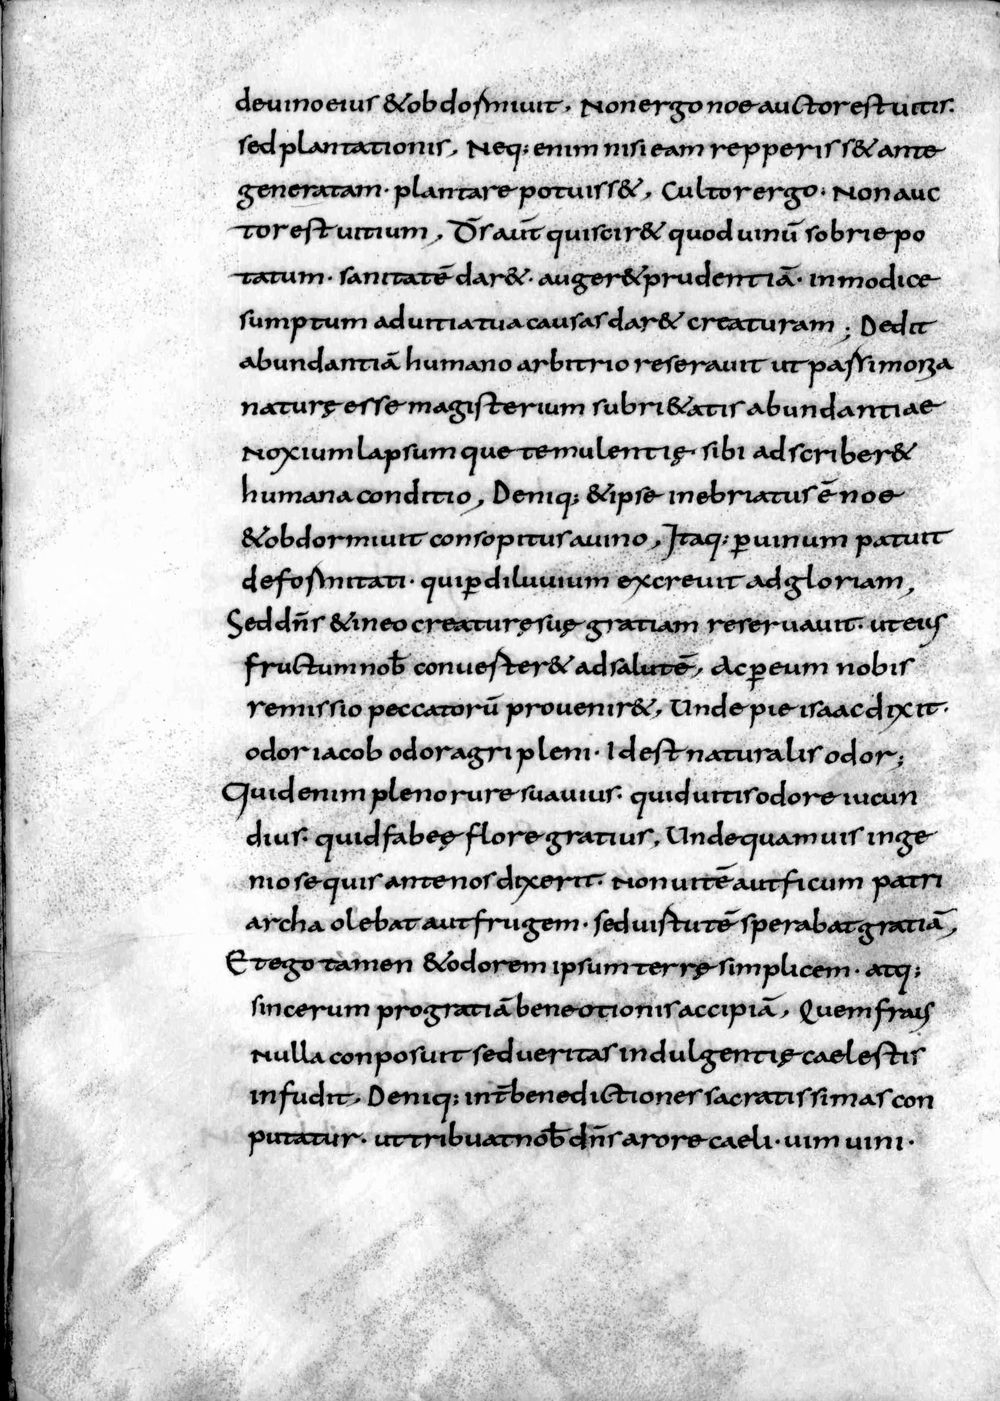 deuinoeius &obdormiuit, Nonergo noe auctorestuitis.
sed plantationis, Neq; enim nisi eam repperiss& ante
generatam· plantare potuiss&, Cultor ergo· Non auc
tor est uitium, D̅s aut̅ qui scir& quod uinū sobrie po
tatum· sanitatē dar&· auger& prudentiā· inmodice
sumptum aduitia tua causas dar& creaturam; Dedit
abundantiā humano arbitrio reserauit ut passimonia
naturę esse magisterium subri&atis abundantiae
Noxium lapsumque temulentię· sibi adscriber&
humana conditio, Deniq; &ipse inebriatus ē noe
&obdormiuit consopitus auino, Itaq; ꝑuinum patuit
deformitati· quiꝑdiluuium excreuit adgloriam,
Sed dn̅s &ineo creaturę suę gratiam reseruauit· ut eius
fructum nob̅ conuester& adsalutē, Acꝑeum nobis
remissio peccatorū prouenir&, Unde pie isaac dixit·
odor iacob odor agri pleni· Idest naturalis odor;
Quid enim pleno rure suauius· quid uitis odore iucun
dius· quid fabeę flore gratius, Unde quamuis inge
niose quis ante nos dixerit· Non uitē aut ficum patri
archa olebat aut frugem· sed uistutē sperabat gratiā,
Et ego tamen &odorem ipsum terrę simplicem· atq;
sincerum pro gratiā benedtionis accipiā, Quem frais
Nulla conposuit sed ueritas indulgentię caelestis
infudit, Deniq; int̅ benedictiones sacratissimas con
putatur· ut tribuat nob̅ dn̅s a rore caeli· uim uini·